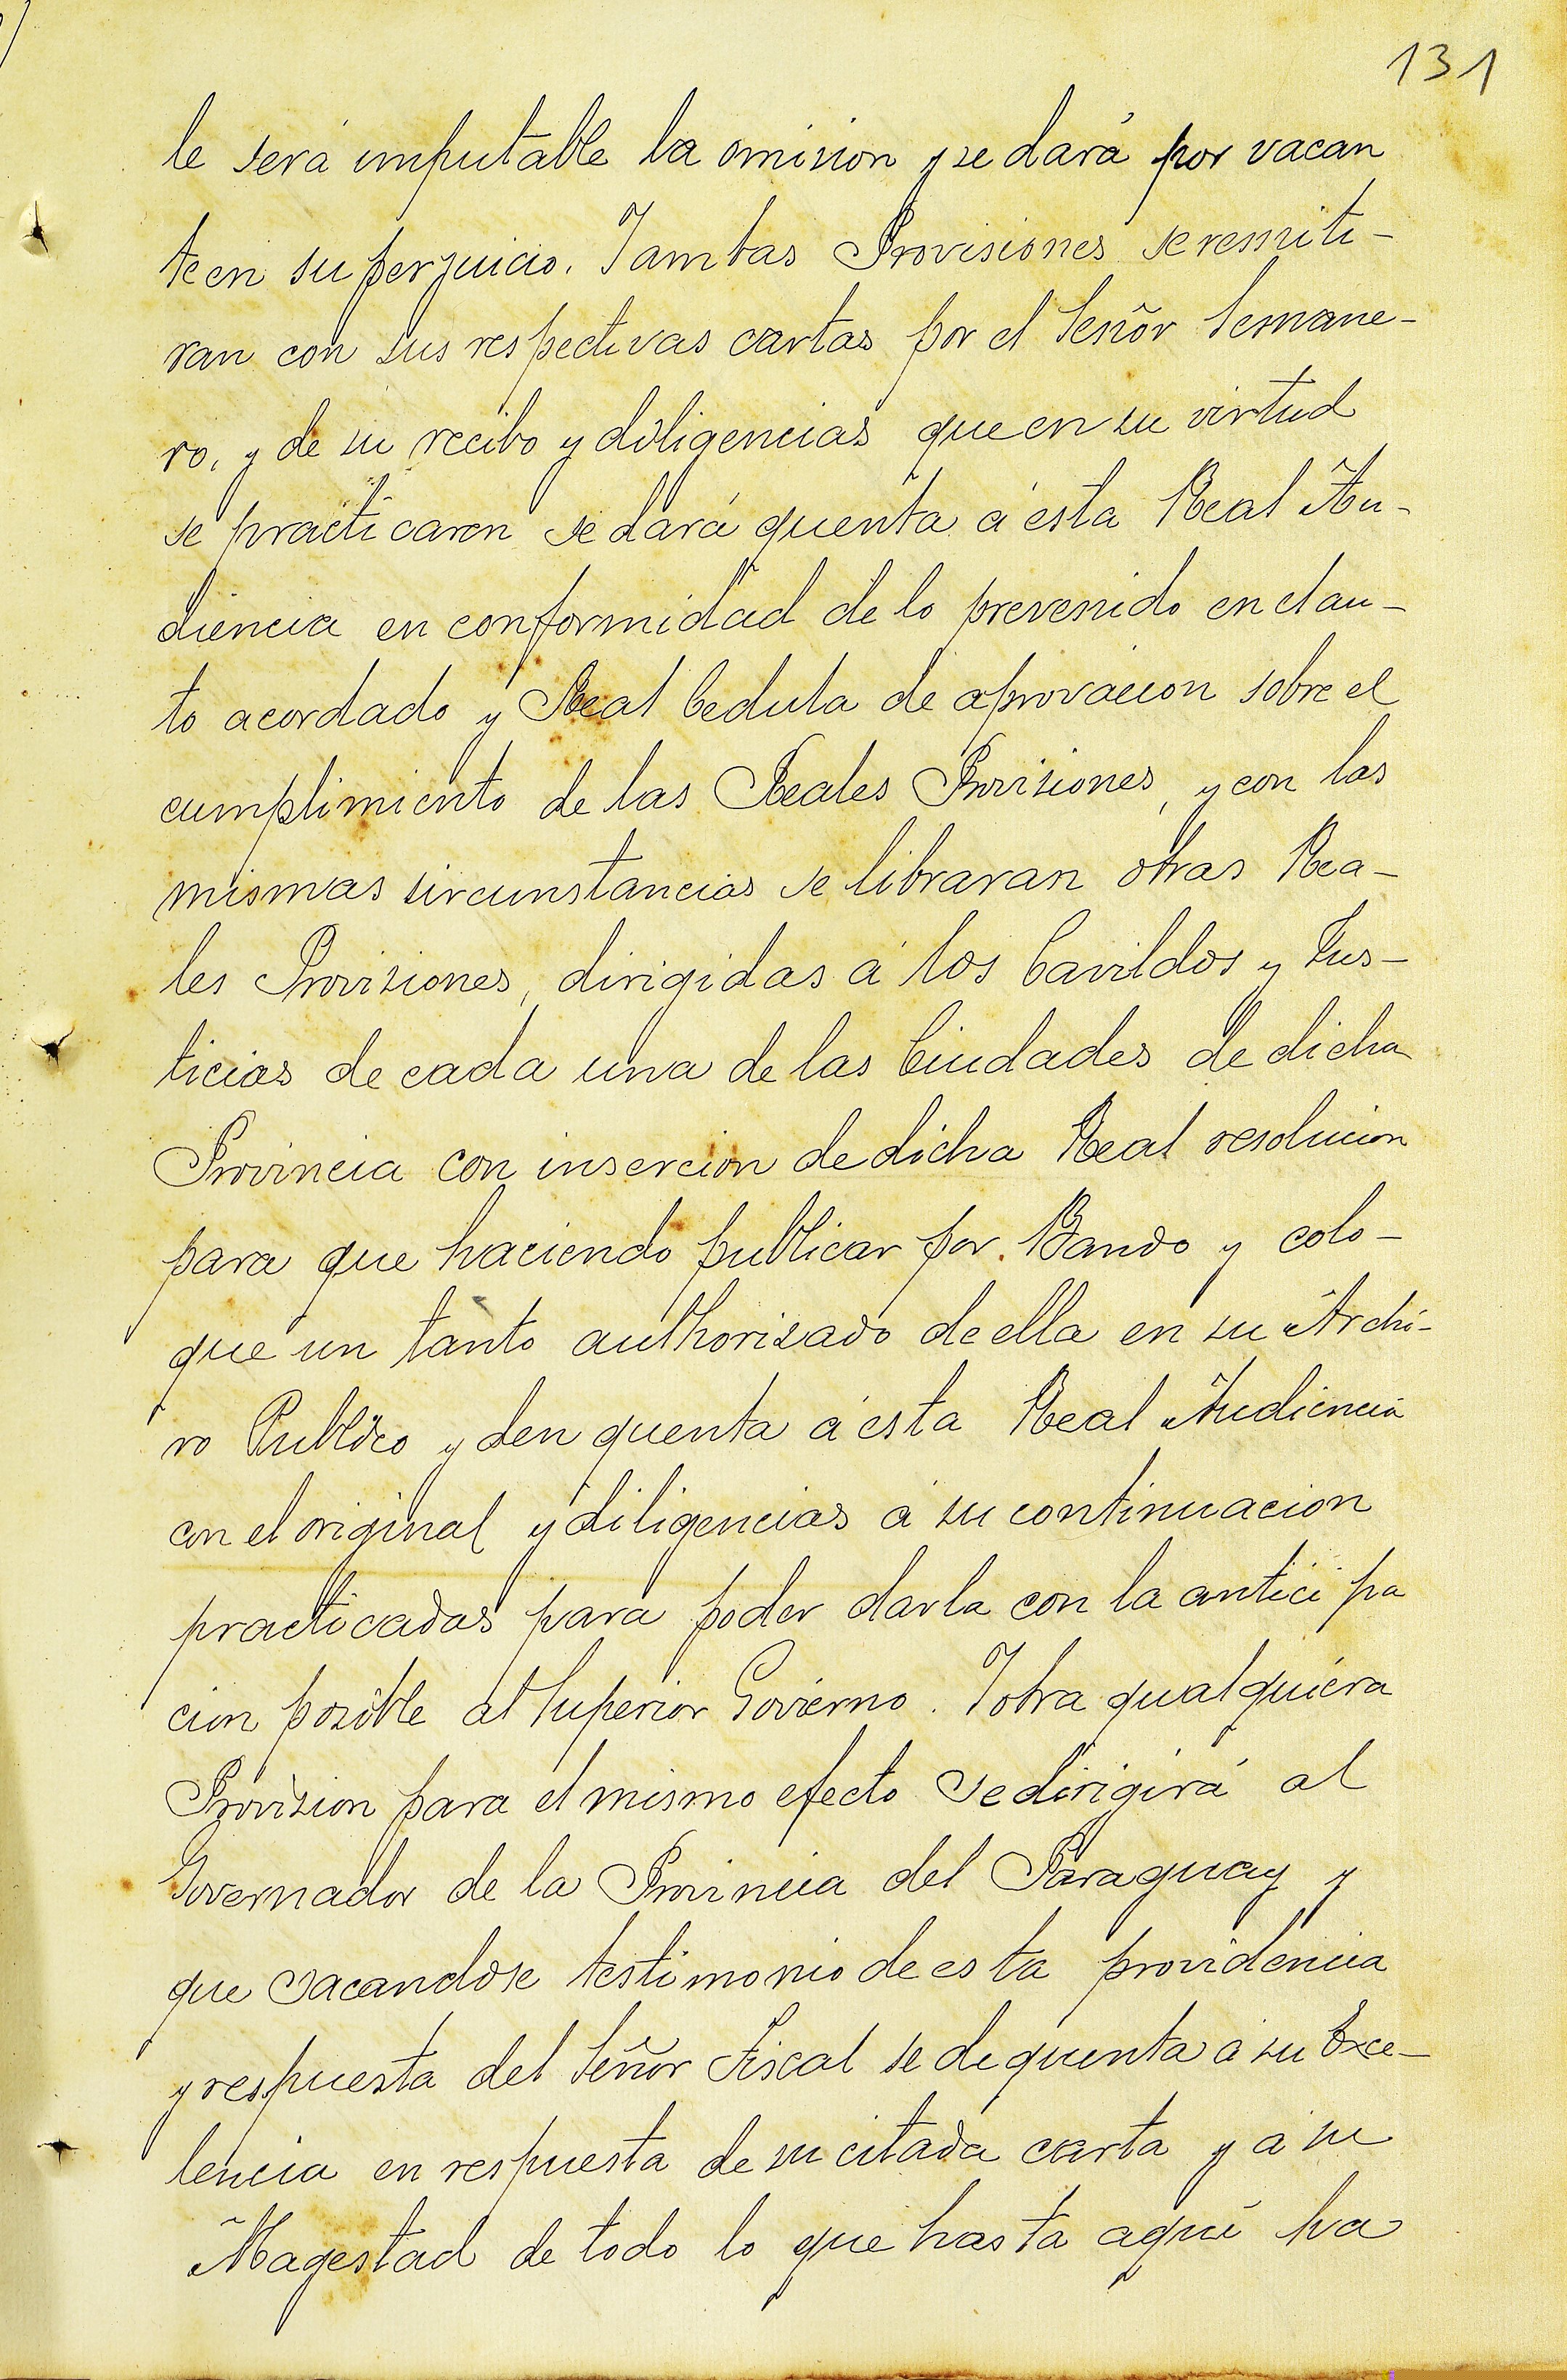 131
le será imputable la omision y se dará por vacan
te en su perjuicio. Yambas Provisiones se remiti-
ran con sus respectivas cartas por el Señor Semane-
ro, y de su recibo y diligencias que en su virtud
se practicaren se dará quenta á esta Real Au-
diencia en conformidad de lo prevenido en el au-
to acordado y Real Cedula de aprovacion sobre el
cumplimiento de las Reales Provisiones, y con las
mismas sircunstancias se libraran otras Rea-
les Provisiones, dirigidas á los Cavildos y Jus-
ticias de cada una de las Ciudades de dicha
Provincia con insercion de dicha Real resolucion
para que haciendo publicar por Bando y colo-
que un tanto authorizado de ella en su Archi-
vo Publico y den quenta á esta Real Audiencia
con el original y diligencias á su continuacion
practicadas para poder darla con la anticipa
cion posible al Superior Govierno. Yotra qualquiera
Provizion para el mismo efecto se dirigirá al
Governador de la Provincia del Paraguay y
que sacandose testimonio de esta providencia
y respuesta del Señor Fiscal se de quenta á su Exce-
lencia en respuesta de su citada carta y á su
Magestad de todo lo que hasta aquí ha